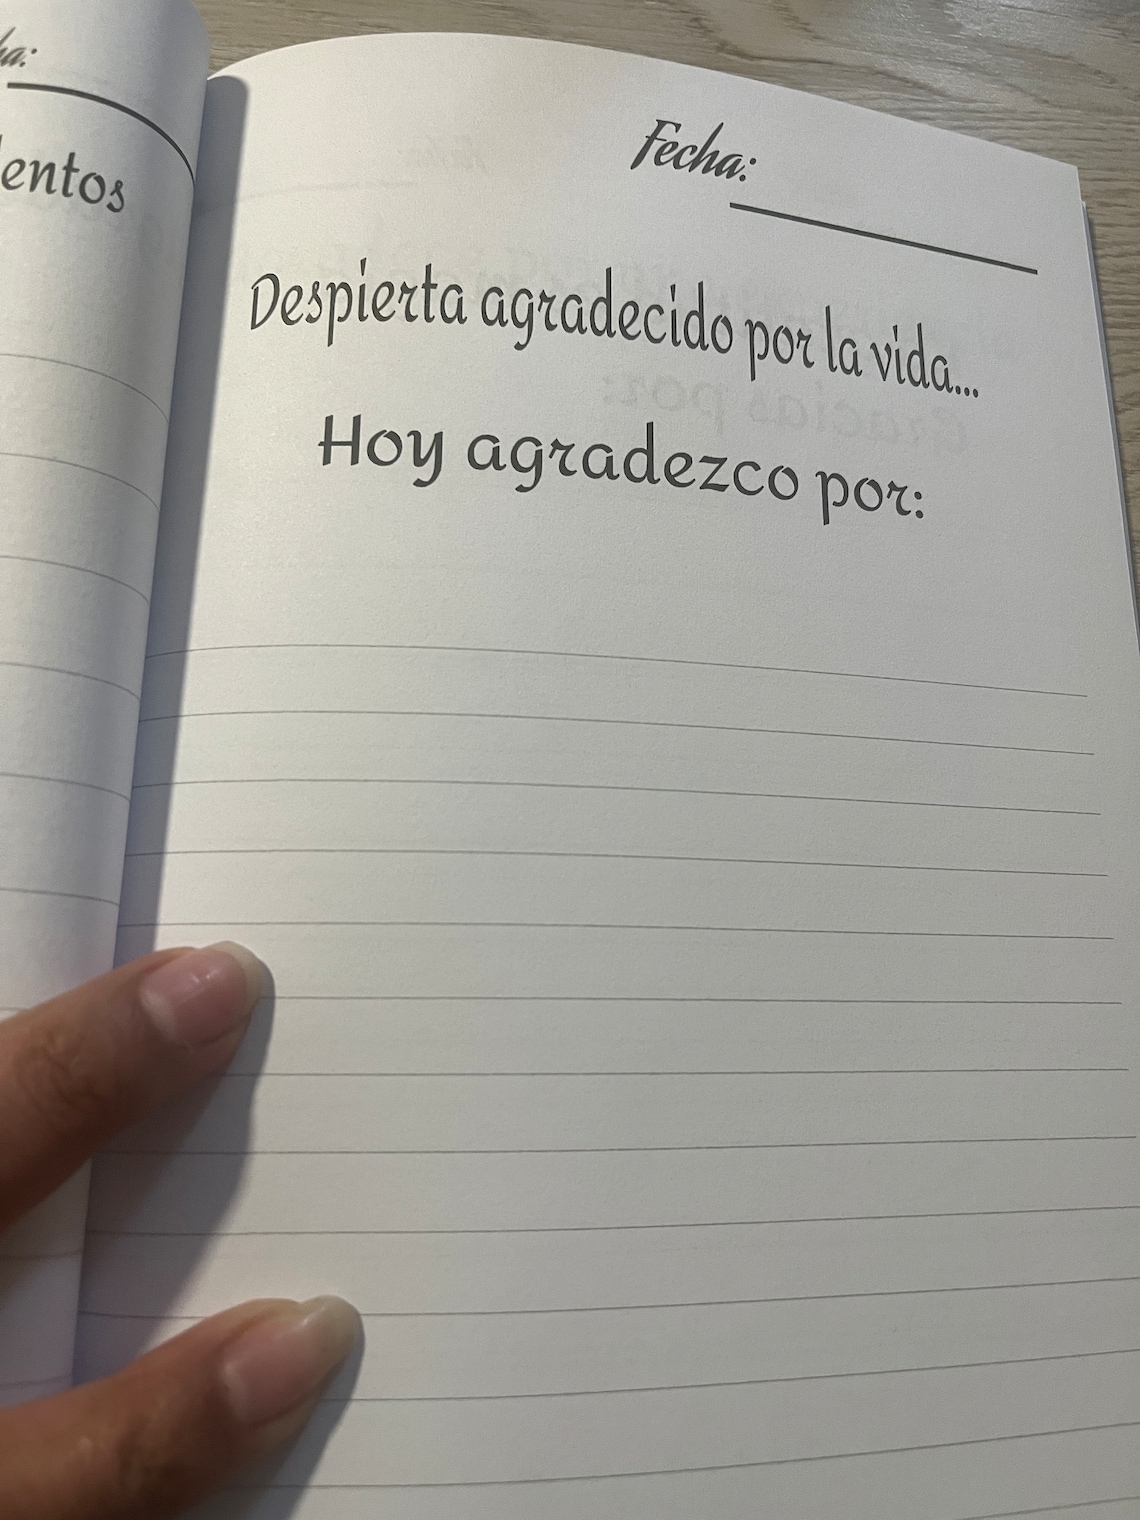 Fecha:
Despierta agradecido por la vida...
Hoy agradezco por: